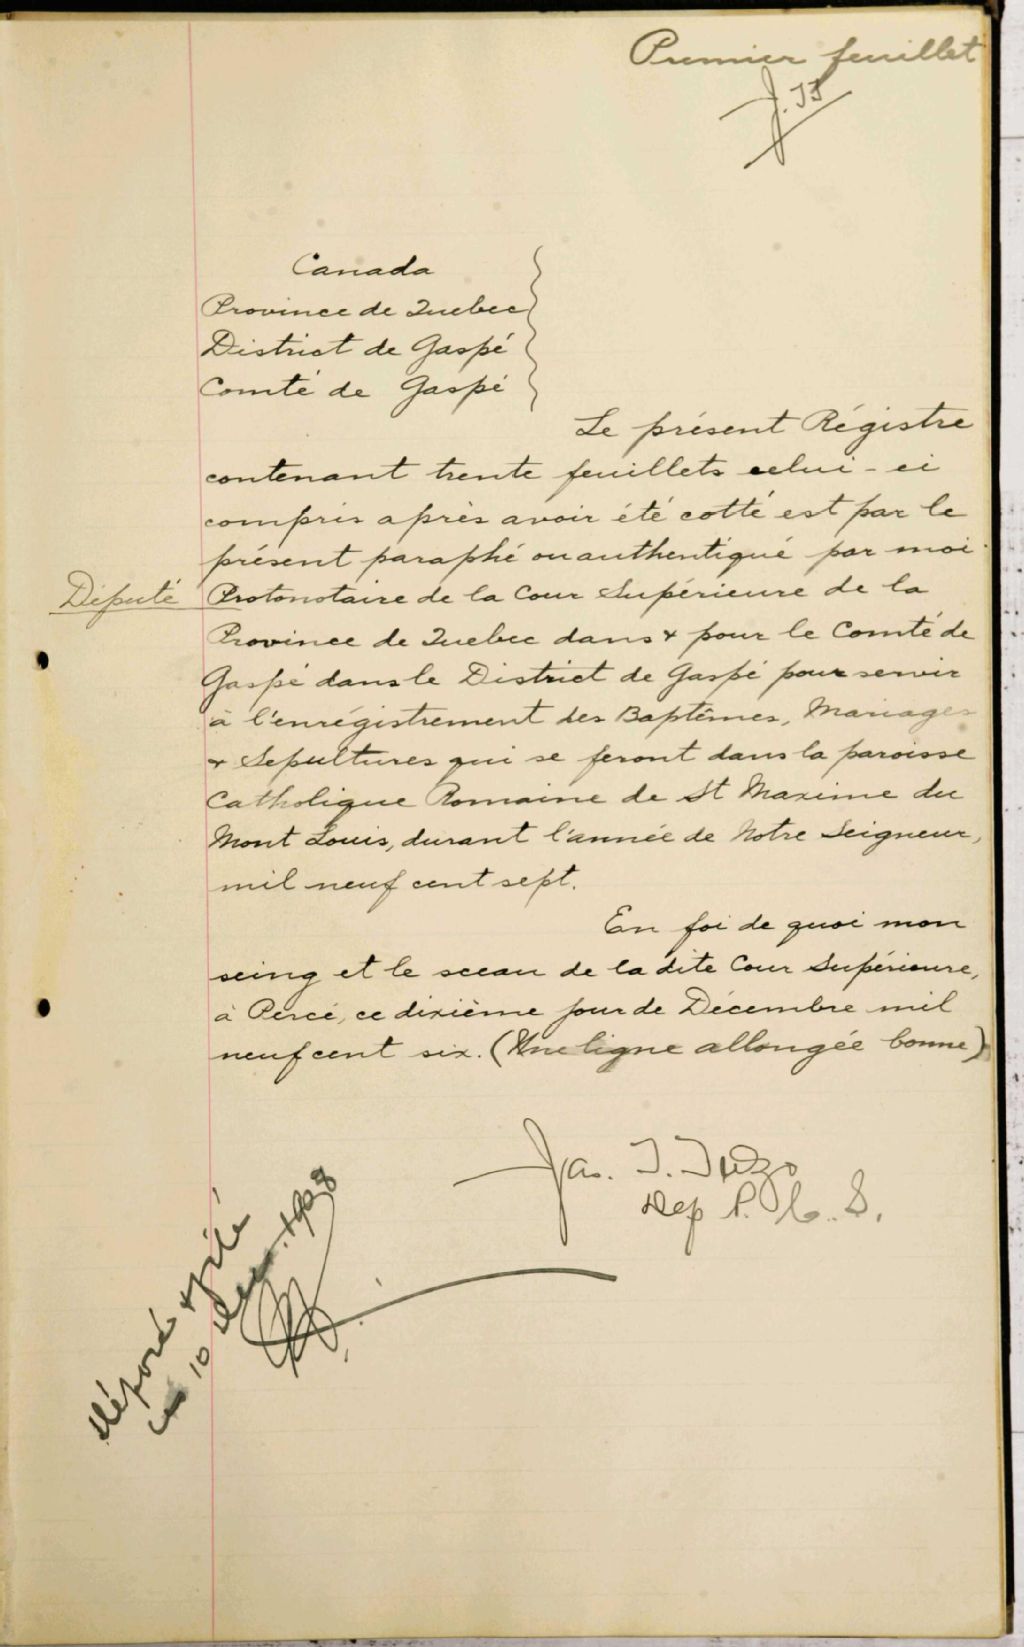 Premier feuillet
J. TT
Canada
Province de Quebec
District de Gaspé
Comté de Gaspé
Le présent Régistre
contenant trente feuillets celui-ci
compris après avoir été cotté est par le
présent paraphé ou authentiqué par moi
Député Protonotaire de la Cour Supérieure de la
Province de Quebec dans & pour le Comté de
Gaspé dans le District de Gaspé pour servir
à l'enrégistrement des Baptêmes, Mariages
& Sepultures qui se feront dans la paroisse
Catholique Romaine de St Maxime du
Mont Louis, durant l'année de Notre Seigneur,
mil neuf cent sept.
En foi de quoi mon
seing et le sceau de la dite Cour Supérieure,
à Percé, ce dixième jour de Décembre mil
neuf cent six. (Une ligne allongée bonne)
Jas. T. Tuzo
Dep P. C. S.
déposé & filé
ce 10 Dec. 1908